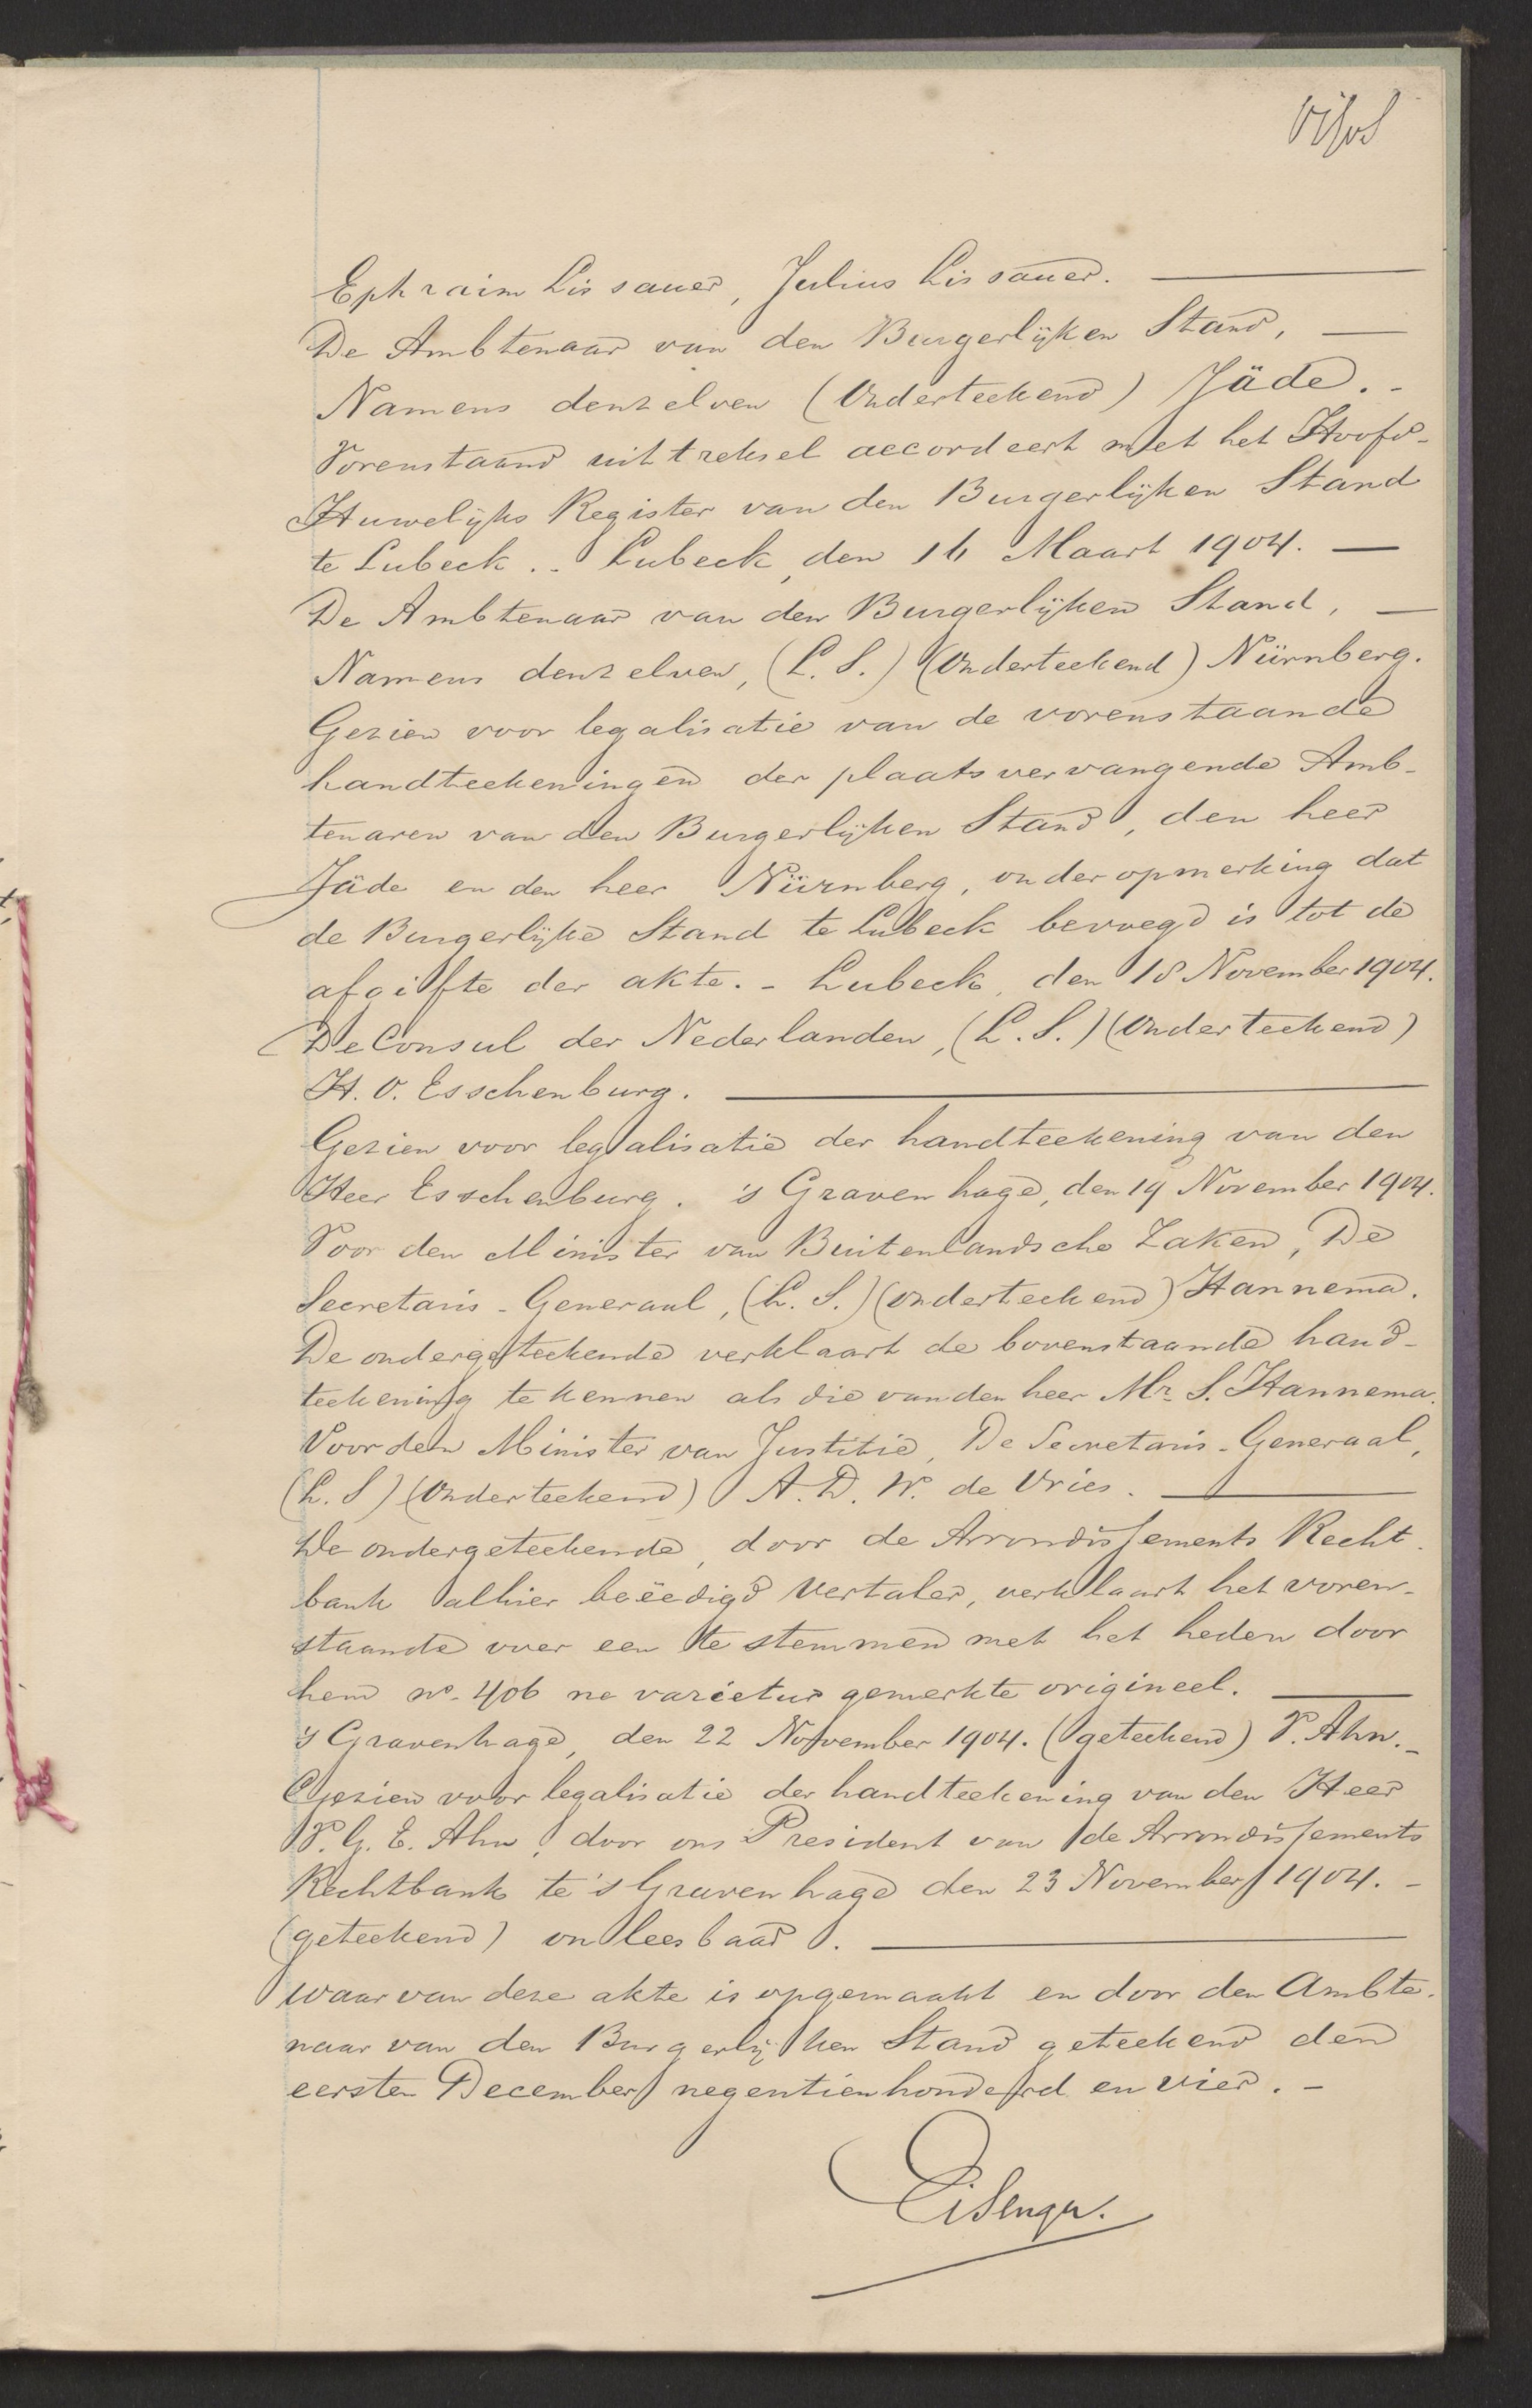 Ephraim Lissauer, Julius Lissauer.
De Ambtenaar van den Burgerlijken Stand,
Namens denzelven (Onderteekend) Jäde. -
Vorenstaand uittreksel accordeert met het Hoofd-
Huwelijks Register van den Burgerlijken Stand
te Lubeck. . Lubeck, den 16 Maart 1904.
De Ambtenaar van den Burgerlijken Stand,
Namens denzelven, (L. S.) (Onderteekend) Nürnberg.
Gezien voor legalisatie van de vorenstaande
handteekeningen der plaatsvervangende Amb-
tenaren van den Burgerlijken Stand, den heer
Jäde en den heer Nürnberg, onder opmerking dat
de Burgerlijke Stand te Lubeck bevoegd is tot de
afgifte der akte. - Lubeck, den 18 November 1904.
De Consul der Nederlanden, (L. S.) (Onderteekend)
H. O. Esschenburg.
Gezien voor legalisatie der handteekening van den
Heer Esschenburg. 's Gravenhage, den 19 November 1904.
Voor den Minister van Buitenlandsche Zaken, De
Secretaris-Generaal, (L. S.) (Onderteekend) Hannema.
De ondergeteekende verklaart de bovenstaande hand-
teekening te kennen als die van den heer Mr. S. Hannema.
Voor den Minister van Justitie, De Secretaris-Generaal,
(L. S) (Onderteekend) A. D. W. de Vries.
De ondergeteekende, door de Arrondissements Recht-
bank alhier beëedigd Vertaler, verklaart het voren-
staande over een te stemmen met het heden door
hem no. 406 ne varietur gemerkte origineel.
's Gravenhage, den 22 November 1904. (geteekend) P. Ahn. -
Gezien voor legalisatie der handteekening van den Heer
P. G. E. Ahn, door ons President van de Arrondissements
Rechtbank te 's Gravenhage den 23 November 1904. -
(geteekend) onleesbaar.
waarvan deze akte is opgemaakt en door den Ambte-
naar van den Burgerlijken Stand geteekend den
eersten December negentienhonderd en vier. -